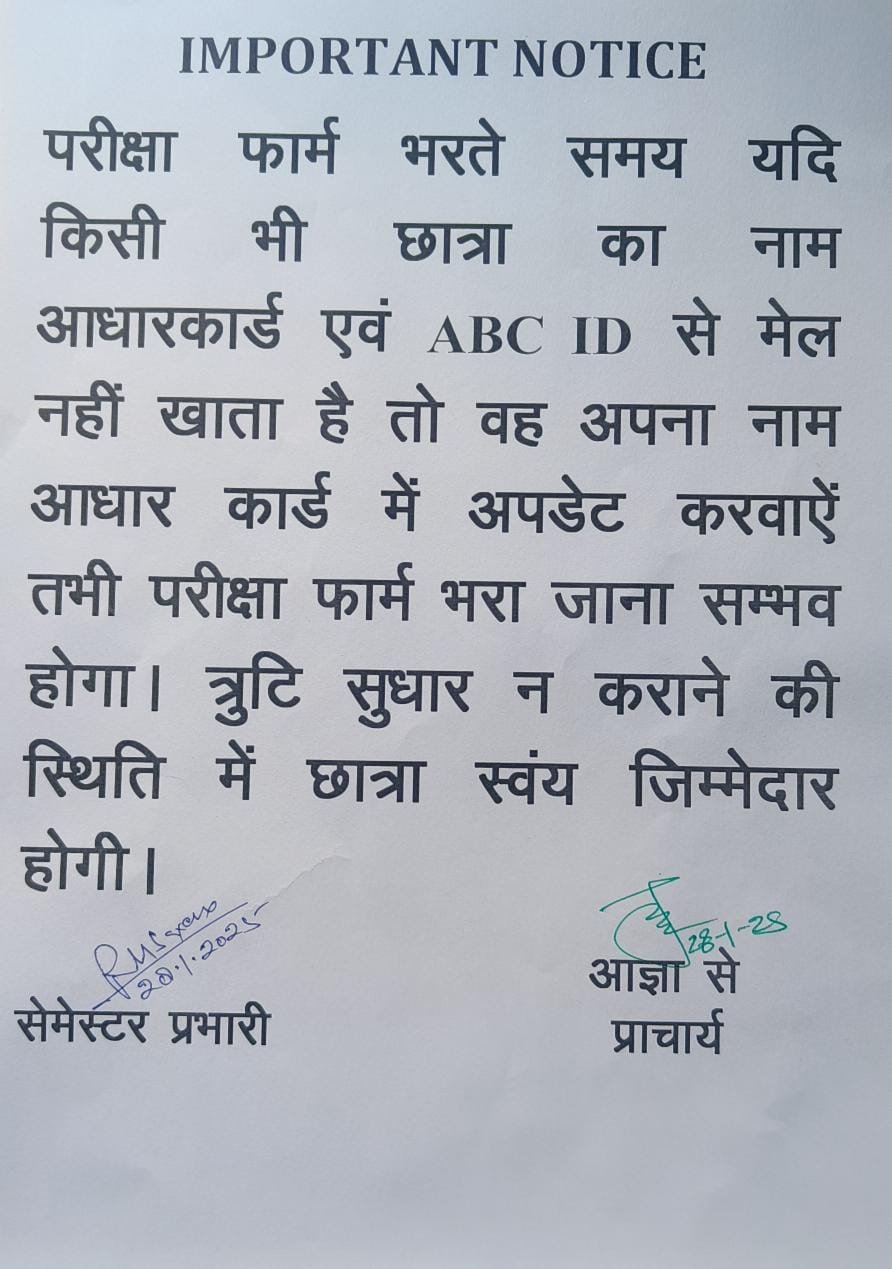 IMPORTANT NOTICE
परीक्षा फार्म भरते समय यदि
किसी भी छात्रा का नाम
आधारकार्ड एवं ABC ID से मेल
नहीं खाता है तो वह अपना नाम
आधार कार्ड में अपडेट करवाऐं
तभी परीक्षा फार्म भरा जाना सम्भव
होगा। त्रुटि सुधार न कराने की
स्थिति में छात्रा स्वंय जिम्मेदार
होगी।
28.1.2025
28-1-25
सेमेस्टर प्रभारी
आज्ञा से
प्राचार्य